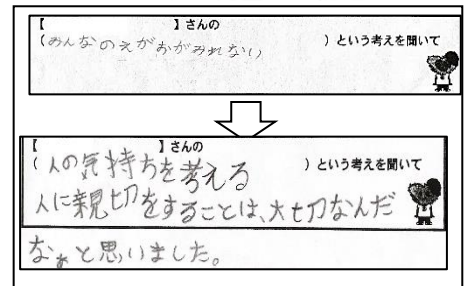 【 】さんの
(みんなのえがおがみれない )という考えを聞いて
【 】さんの
(人の気持ちを考える )という考えを聞いて
人に親切をすることは、大切なんだ
なぁと思いました。